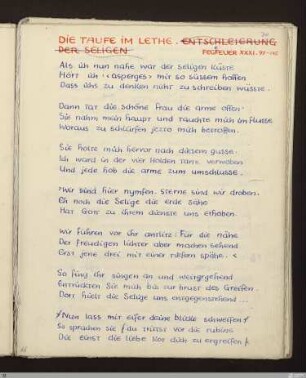 DIE TAUFE IM LETHE. ENTSCHLEIERUNG
DER SELIGEN
FEGFEUER XXXI.
Als ich nun nahe war der seligen küste
Hört ich ‹asperges› mir so süssem haften
Dass ichs zu denken nicht zu schreiben wüsste.
Dann tat die schöne Frau die arme offen
Sie nahm mein haupt und tauchte mich im flusse
Woraus zu schlürfen jezto mich betroffen.
Sie holte mich hervor nach diesem gusse
Ich ward in der vier holden tanz verwoben
Und jede hob die arme zum umschlusse.
‹Wir sind hier nymfen. sterne sind wir droben.
Eh noch die Selige die erde sahe
Hat Gott zu ihrem dienste uns erhoben.
Wir führen vor ihr antlitz: Für die nähe
Der freudigen lichter aber machen sehend
Erst jene drei mit einer tiefern spähe.›
So fing ihr singen an und weitergehend
Entrückten Sie mich bis zur brust des Greifen.
Dort hielt die Selige uns entgegenstehend...
‹Nun lass mit eifer deine blicke schweifen›
So sprachen sie ‹du trittst vor die rubine
Die einst die liebe hob dich zu ergreifen›